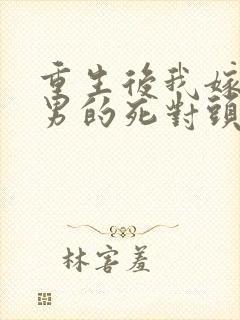 重生後我嫁
男的死對頭
林害羞